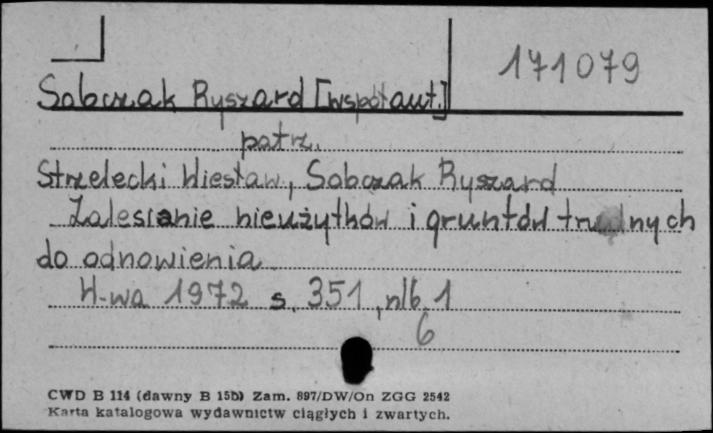 171079
Sobczak Ryszard [współaut.]
patrz.
Strzelecki Wiesław, Sobczak Ryszard
Zalesianie nieużytków i gruntów trudnych
do odnowienia
W-wa 1972 s. 351, nlb 1
6
CWD B 114 (dawny B 15b) Zam. 897/DW/On ZGG 2542
Karta katalogowa wydawnictw ciągłych i zwartych.